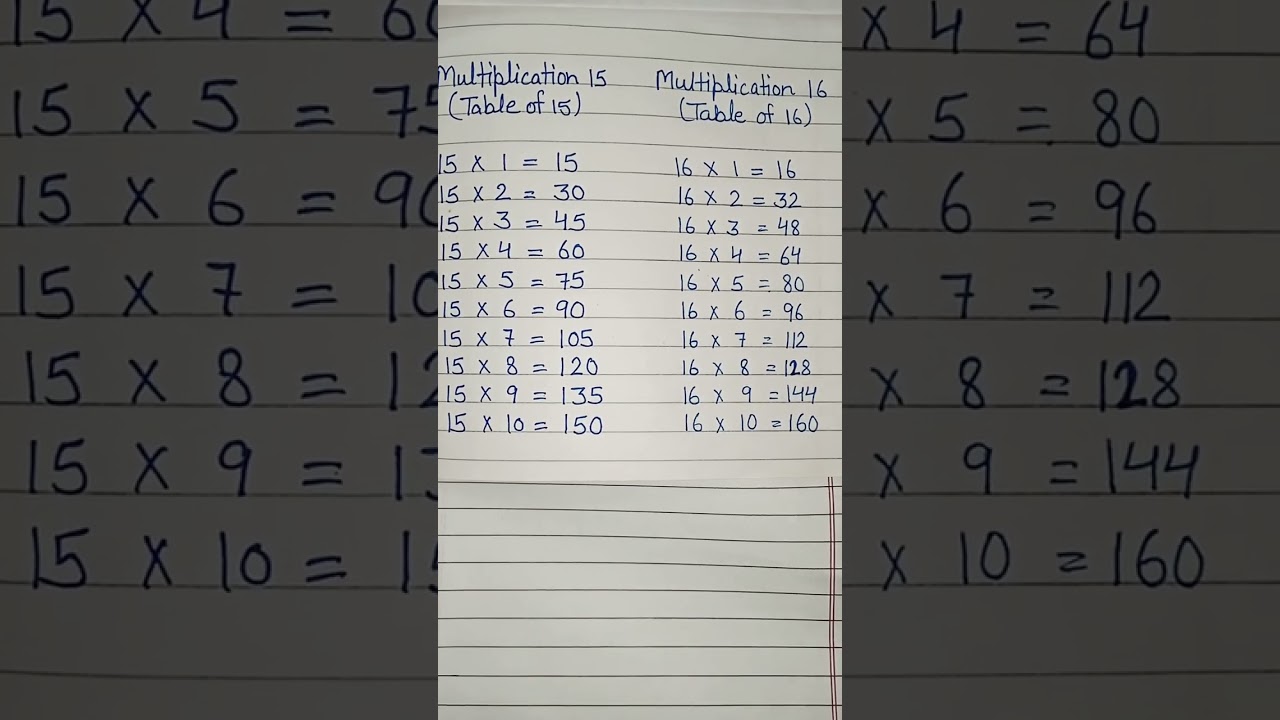 Multiplication 15
(Table of 15)
15 X 1 = 15
15 X 2 = 30
15 X 3 = 45
15 X 4 = 60
15 X 5 = 75
15 X 6 = 90
15 X 7 = 105
15 X 8 = 120
15 X 9 = 135
15 X 10 = 150
Multiplication 16
(Table of 16)
16 X 1 = 16
16 X 2 = 32
16 X 3 = 48
16 X 4 = 64
16 X 5 = 80
16 X 6 = 96
16 X 7 = 112
16 X 8 = 128
16 X 9 = 144
16 X 10 = 160